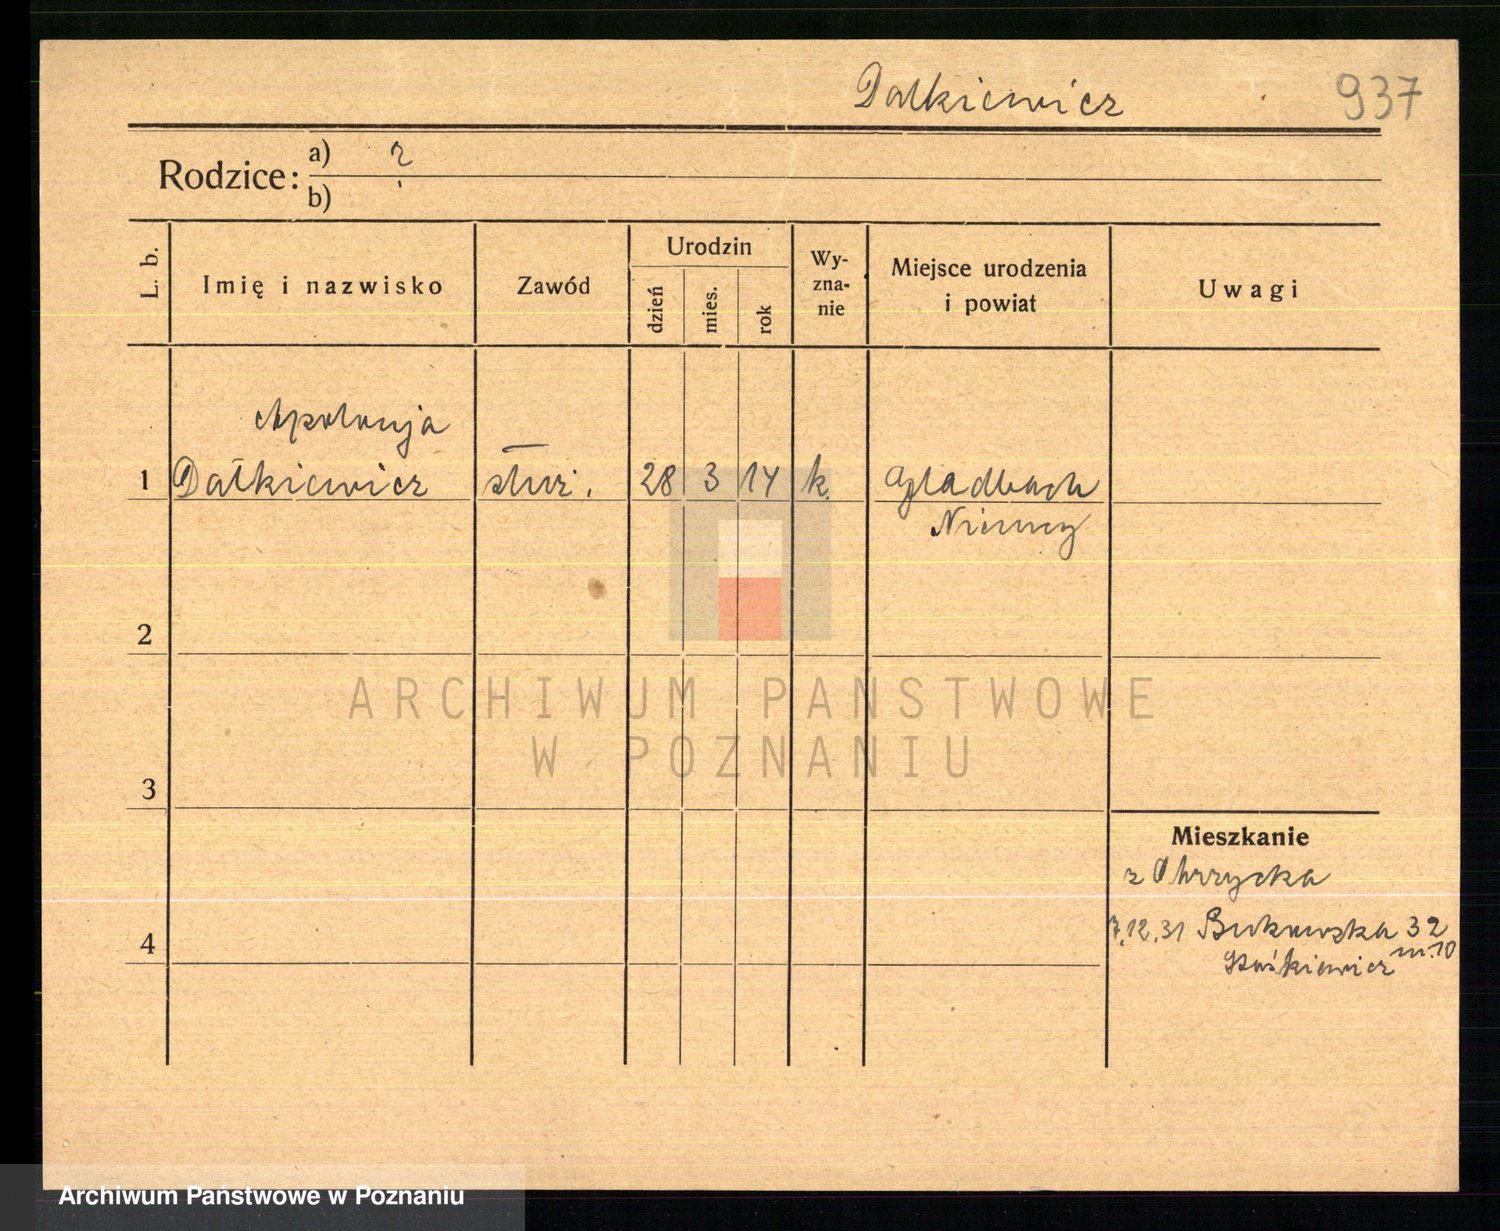 Dałkiewicz 937
Rodzice: a) ?
b)
L. b. Imię i nazwisko Zawód Urodzin dzień mies. rok Wy-zna-nie Miejsce urodzenia i powiat Uwagi
Apolonja
1 Dałkiewicz służ. 28 3 14 k. Gladbach
Niemcy
2
ARCHIWUM PAŃSTWOWE
W POZNANIU
3
Mieszkanie
z Obrzycka
7.12.31 Bukowska 32
m. 10
4
Archiwum Państwowe w Poznaniu